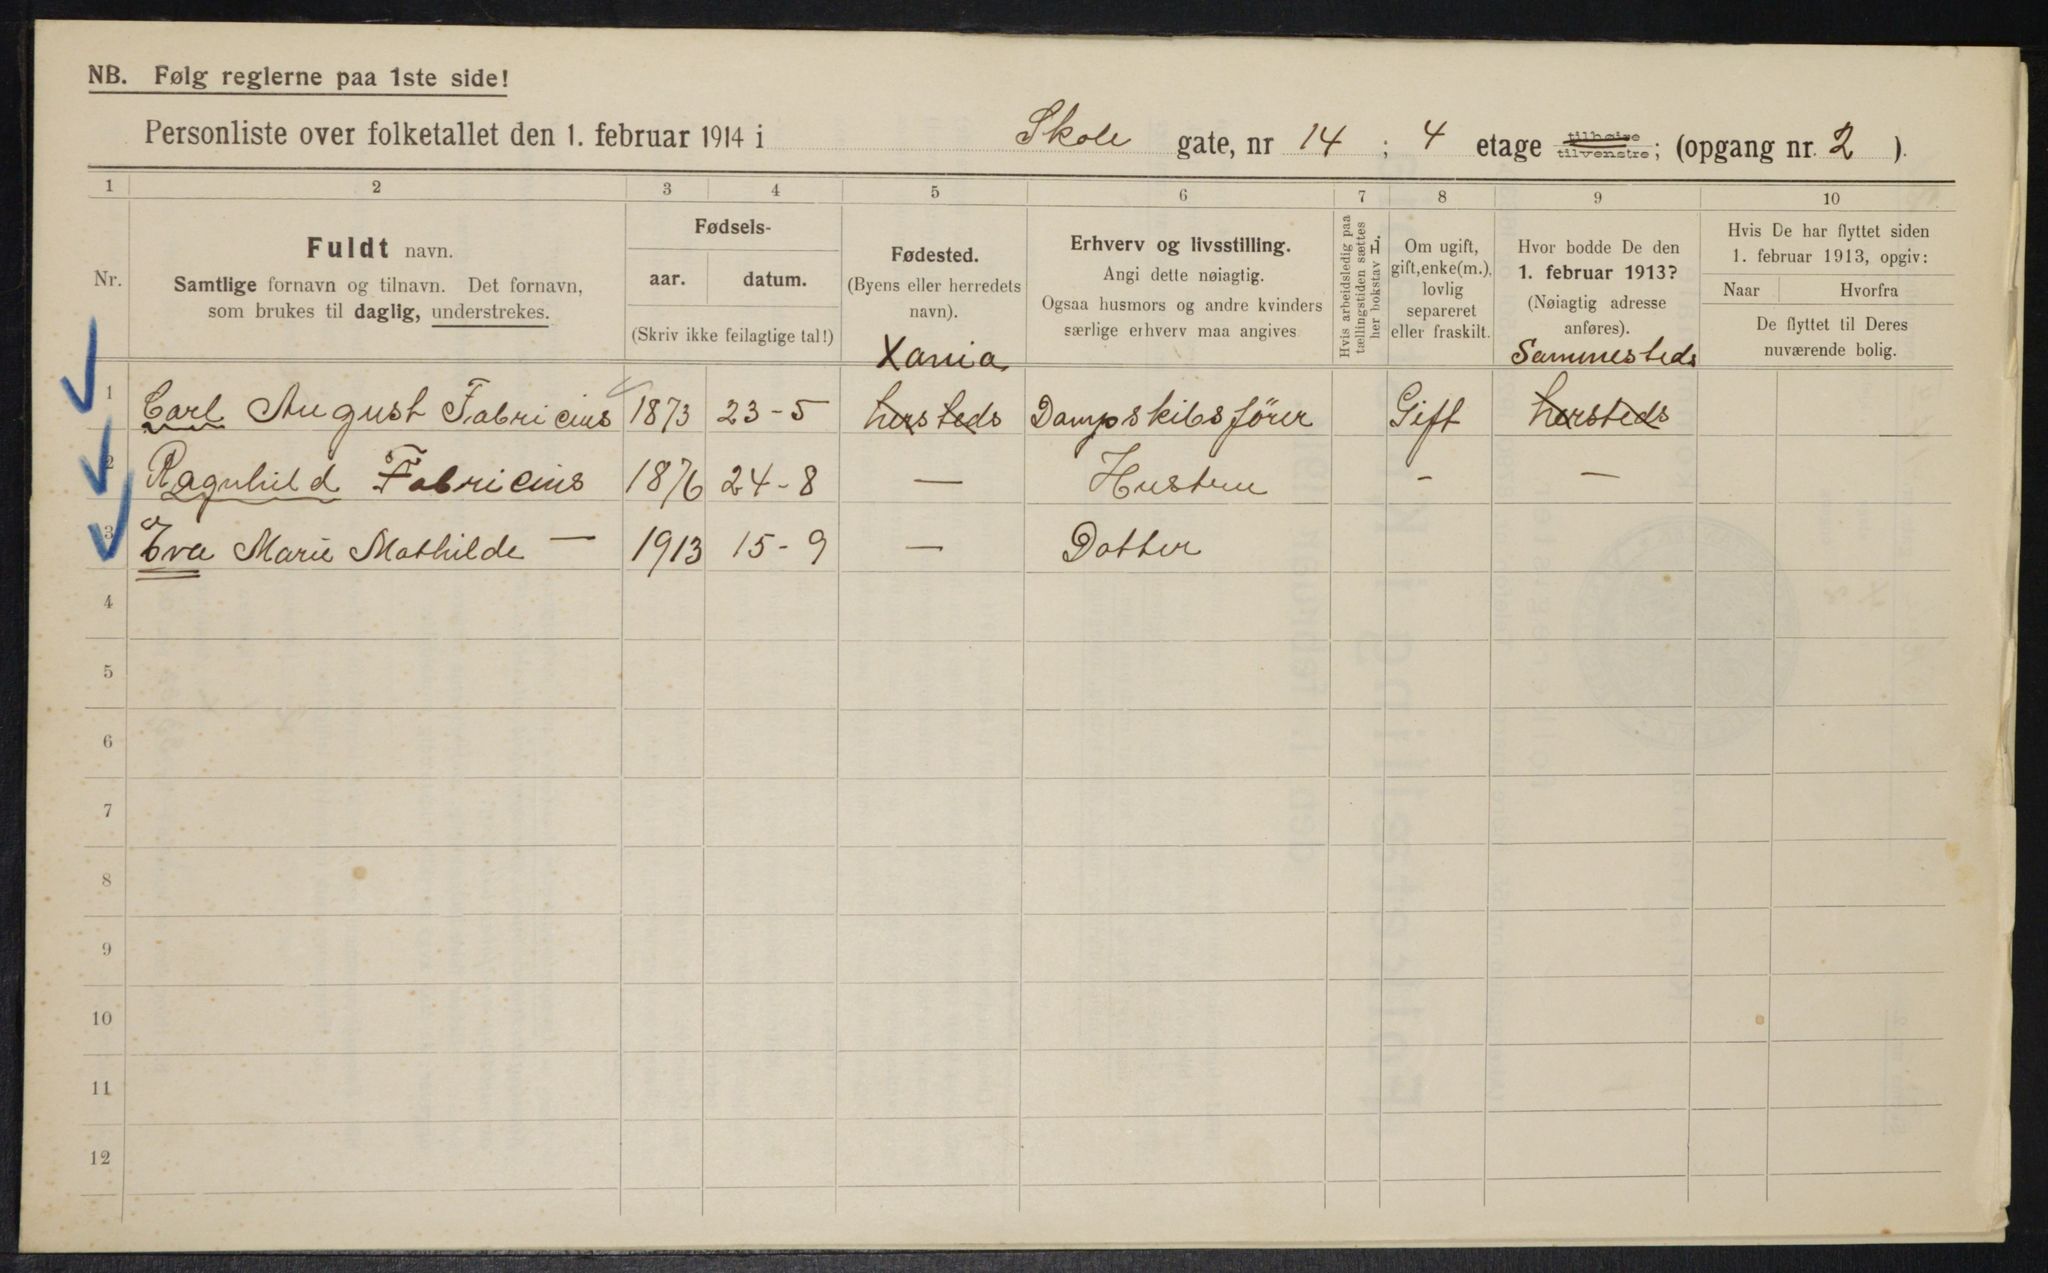 NB. Følg reglerne paa 1ste side!
Personliste over folketallet den 1. februar 1914 i Skole gate, nr 14 ; 4 etage tilhøire tilvenstre; (opgang nr. 2 ).
1 2 3 4 5 6 7 8 9 10
Nr.
Fuldt navn.
Samtlige fornavn og tilnavn. Det fornavn,
som brukes til daglig, understrekes.
Fødsels-
aar. datum.
(Skriv ikke feilagtige tal!)
Fødested.
(Byens eller herredets
navn).
Erhverv og livsstilling.
Angi dette nøiagtig.
Ogsaa husmors og andre kvinders
særlige erhverv maa angives
Hvis arbeidsledig paa
tællingstiden sættes
her bokstav L.
Om ugift,
gift, enke(m.),
lovlig
separeret
eller fraskilt.
Hvor bodde De den
1. februar 1913?
(Nøiagtig adresse
anføres).
Hvis De har flyttet siden
1. februar 1913, opgiv:
Naar Hvorfra
De flyttet til Deres
nuværende bolig.
Xania Sammesteds
1 Carl August Fabricius 1873 23-5 hersteds Dampskibsfører Gift hersteds
2 Ragnhild Fabricius 1876 24-8 — Hustru - —
3 Eva Marie Mathilde — 1913 15-9 — Datter
4
5
6
7
8
9
10
11
12